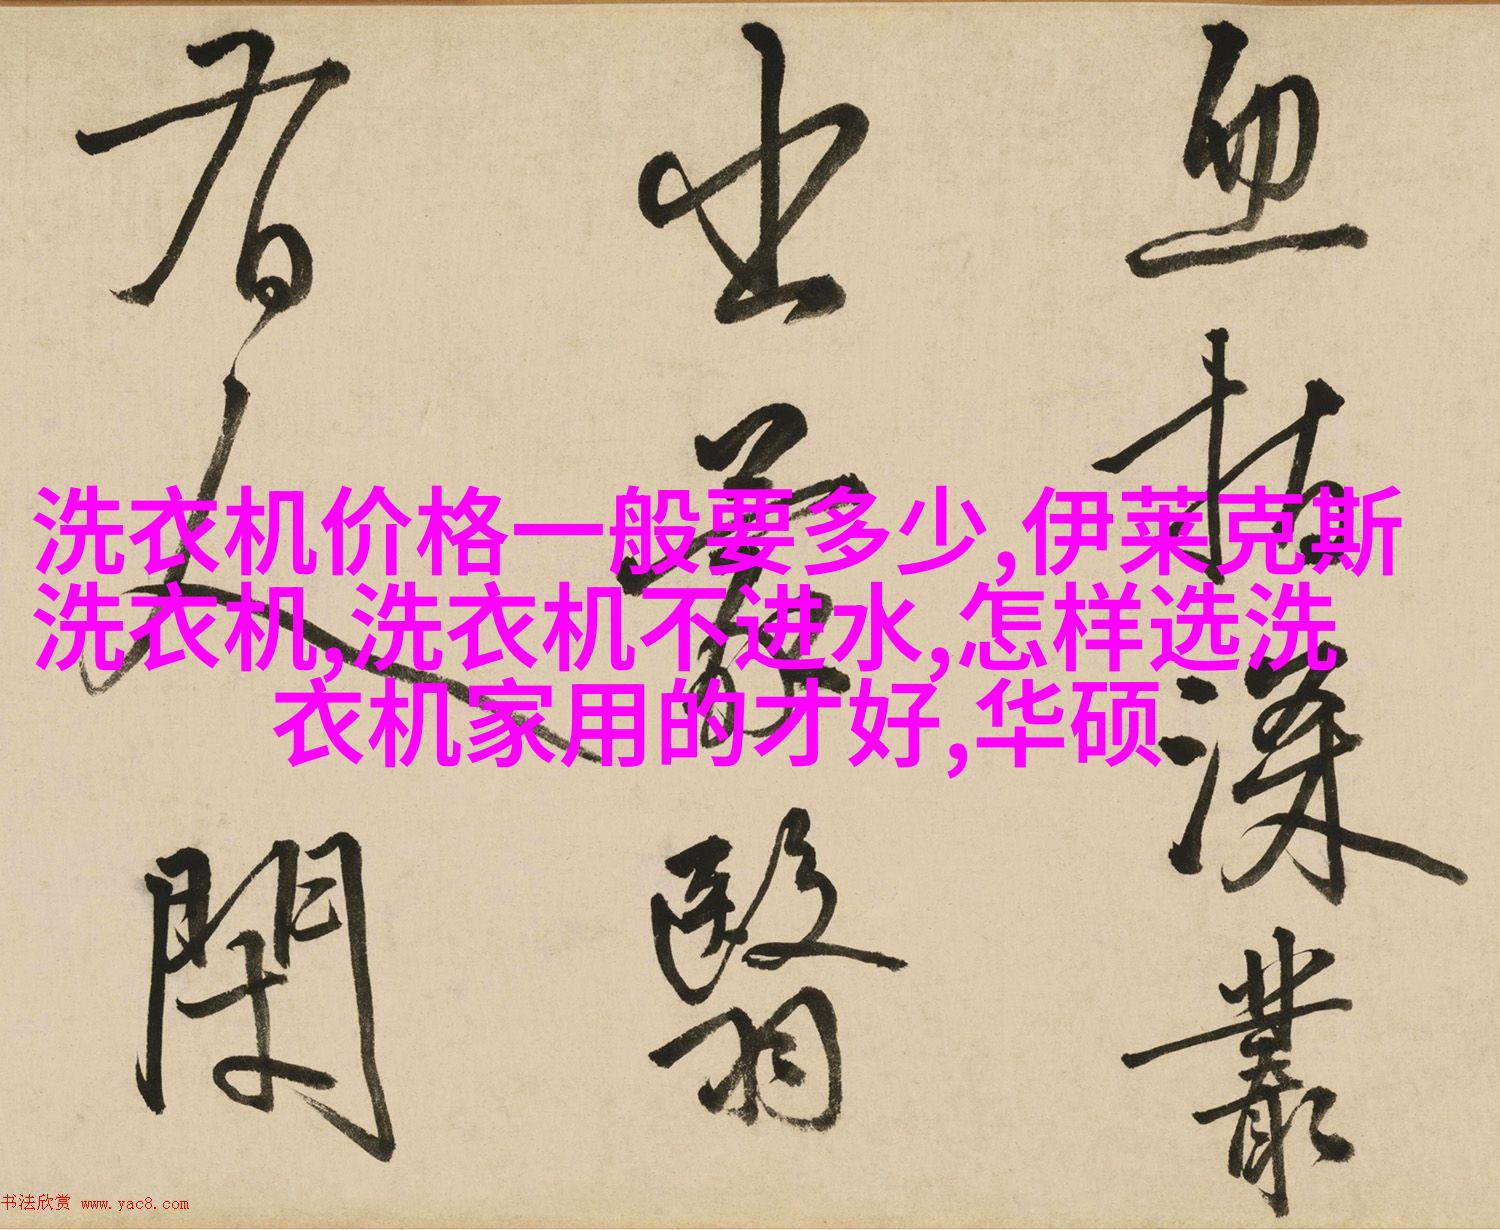 洗衣机价格一般要多少,伊莱克斯
洗衣机,洗衣机不进水,怎样选洗
衣机家用的才好,华硕
深叢
出蒙翳
人閑
书法欣赏 www.yac8.com